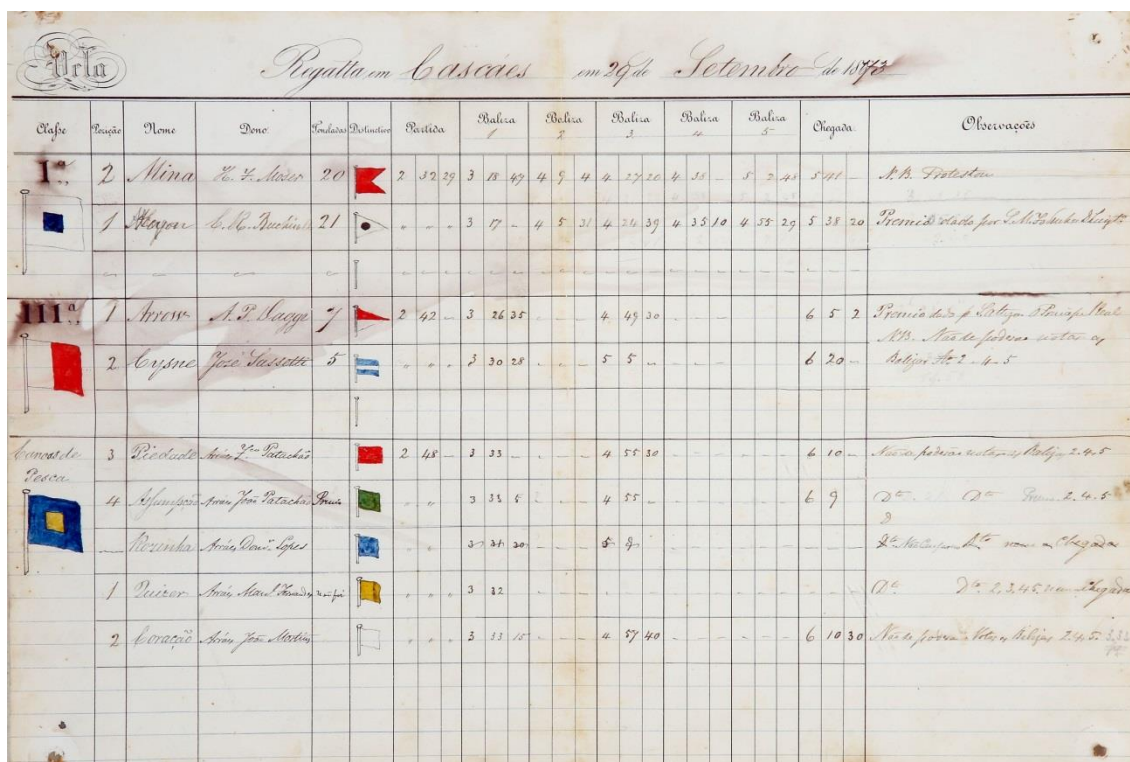 Vela
Regatta em Cascáes em 29 de Setembro de 1873
Classe Posição Nome Dono Tonladas Distinctivo Partida Baliza 1 Baliza 2 Baliza 3 Baliza 4 Baliza 5 Chegada Observações
Iª 2 Mina H. F. Moser 20 2 32 29 3 18 47 4 9 4 4 27 20 4 38 - 5 2 48 5 41 - N.B. Protestou
1 21 " " " 3 17 - 4 5 31 4 24 39 4 35 10 4 55 29 5 38 20 Premio dado por S. M.
IIIª 1 Arrow A. P. 7 2 42 - 3 26 35 4 49 30 6 5 2 Premio dado p.
N.B. Não se poderão notar as
2 Cysne José Sassetti 5 " " " 3 30 28 5 5 - 6 20 - Balizas Nº 2-4-5
Canoas de
Pesca
3 Piedade Arráes Patachão 2 48 - 3 33 - 4 55 30 6 10 - Não se poderão notar as Balizas 2.4.5
4 Assumpção Arráes João Patachão " " " 3 33 5 4 55 - 6 9 Dto Dto 2.4.5
Rozinha Arráes Lopes 3 31 30 Chegada
1 Arráes 3 32 Dto Dto 2.3.4.5. nem Chegada
2 Coração Arráes João Martins " " " 3 33 15 4 57 40 6 10 30 Não se Balizas 2.4.5.